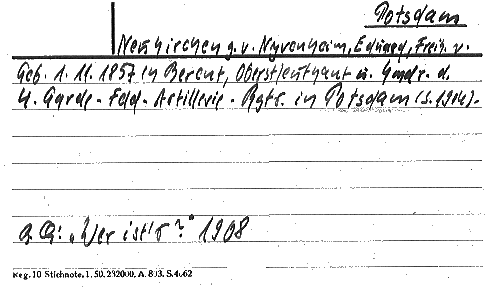 Potsdam
Neukirchen g. v. Nyvenheim, Eduard, Freih. v.
Geb. 1. 11. 1857 in Berent, Oberstleutnant u. Kmdr. d.
4. Garde-Feld-Artillerie-Rgts. in Potsdam (s. 1904).
a. Q.: „Wer ist's?" 1908
Reg. 10 Stichnote. 1. 50. 232000. A. 803. S. 4. 62